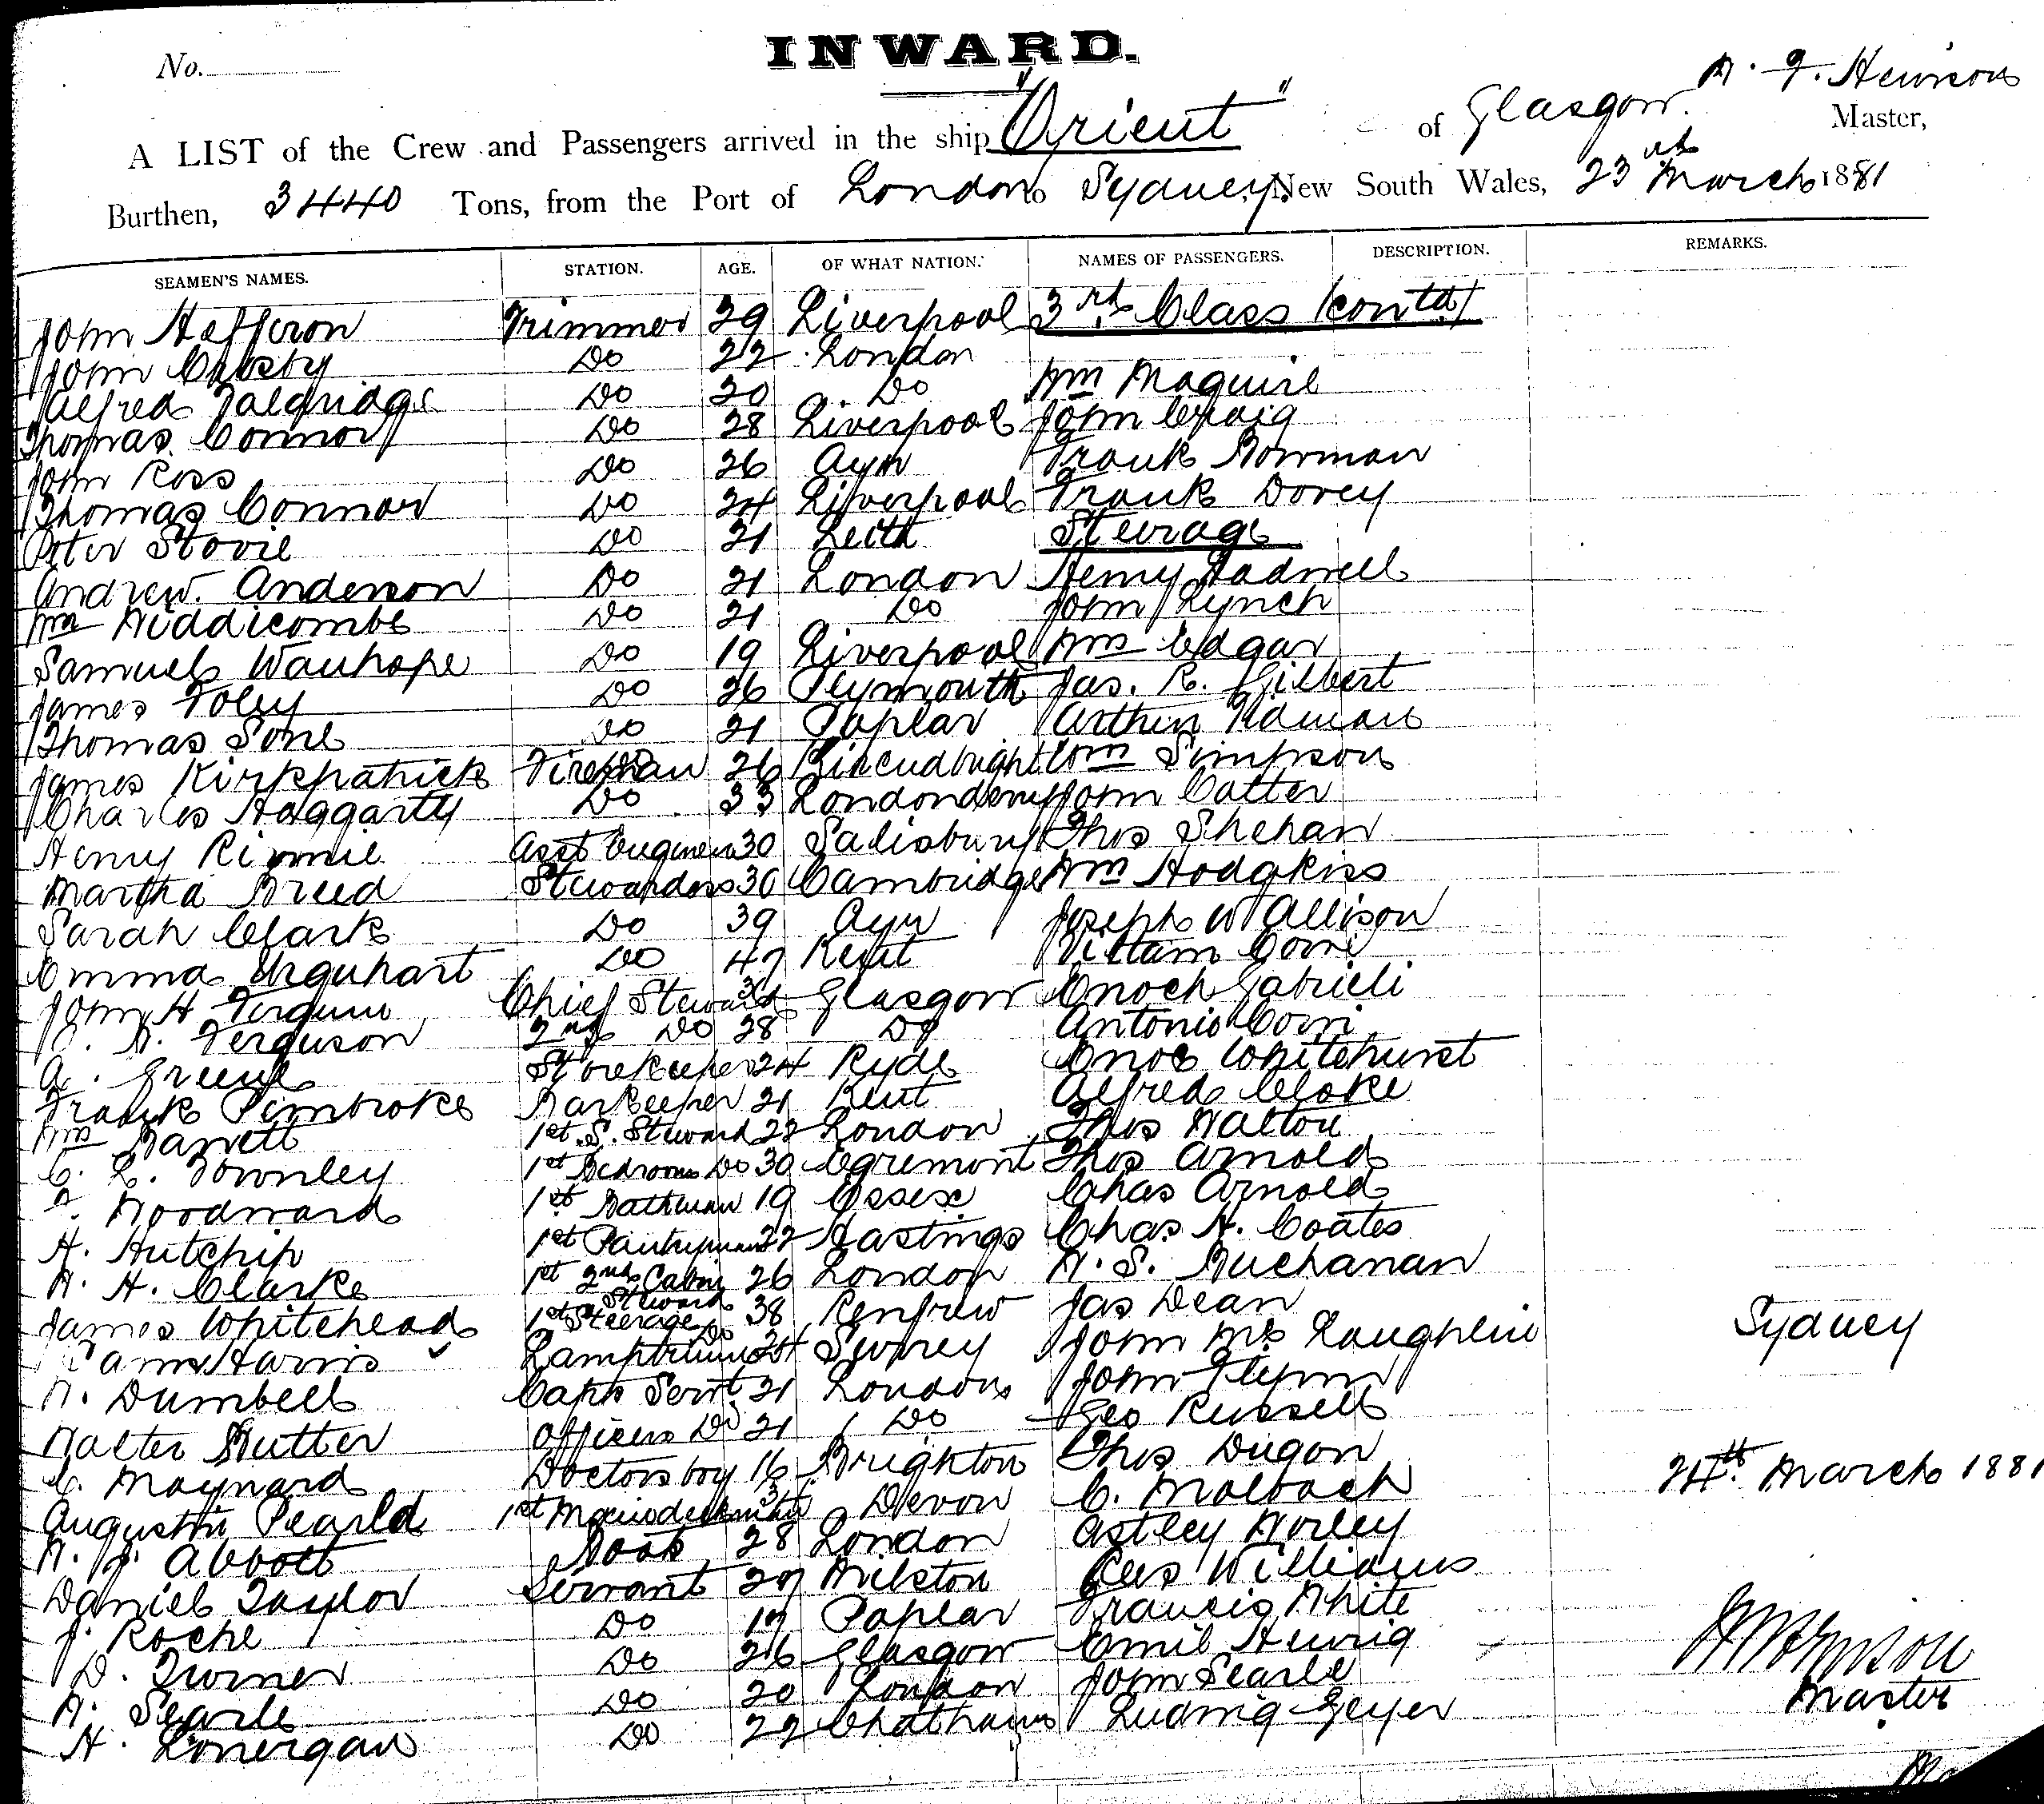 INWARD.
No.
W. F. Hewison
A LIST of the Crew and Passengers arrived in the ship "Orient" of Glasgow. Master,
Burthen, 3440 Tons, from the Port of London to Sydney, New South Wales, 23rd March 1881
SEAMEN'S NAMES. STATION. AGE. OF WHAT NATION. NAMES OF PASSENGERS. DESCRIPTION. REMARKS.
John Hefferon Trimmer 29 Liverpool 3rd Class (contd)
John Crosby Do 22 London
Alfred Do 20 Do Wm Maguire
Thomas Connor Do 28 Liverpool John Craig
John Ross Do 26 Ayr Frank Bowman
Thomas Connor Do 24 Liverpool Frank Dovey
Peter Do 21 Leith Steerage
Andrew Anderson Do 21 London Henry Radwell
Wm Widdicombe Do 21 Do John Lynch
Samuel Wauhope Do 19 Liverpool Wm Edgar
James Foley Do 26 Plymouth Jas. R. Gilbert
Thomas Sone Do 21 Poplar Arthur
James Kirkpatrick Fireman 26 Wm Simpson
Charles Haggarty Do 33 Londonderry John Catter
Henry Rimmie Asst Engineer 30 Salisbury Thos Shehan
Martha Breed Stewardess 30 Cambridge Wm Hodgkiss
Sarah Clark Do 39 Ayr Joseph W Allison
Emma Urquhart Do 47 Kent Corri
John H Chief Steward Glasgow Enoch Gabrieli
Ferguson 2nd Do 28 Do Antonio Corri
A. Greene Storekeeper 24 Ryde Enoc Whitehurst
Frank Pembroke Barkeeper 21 Kent Alfred Cloke
Wm Barrett 1st S. Steward 22 London Thos Walton
C. L. Townley 1st Bedroom Do 30 Egremont Thos Arnold
F. Woodward 1st Bathman 19 Essex Chas Arnold
H. Hutchip 1st Pantryman 22 Hastings Chas. H. Coates
W. H. Clarke 1st 2nd Cabin Steward 26 London W. S. Buchanan
James Whitehead 1st Steerage Do 38 Renfrew Jas Dean
Harris Lamptrimmer 24 Surrey John McLaughlin Sydney
W. Dumbell Capts Servt 21 London John Flynn
Walter Rutter Officers Do 21 Do Geo Russell
C. Maynard Doctors boy 16 Brighton Thos Dugan 24th March 1881
Augustin Pearld 1st Devon C. Malbach
W. J. Abbott Boots 28 London Astley Worley
Daniel Taylor Servant 27 Milston Williams
J. Roche Do 17 Poplar Francis White
D. Turner Do 26 Glasgow Emil Herwig
W. Searle Do 20 London John Searle Master
H. Lonergan Do 22 Chatham Ludwig Geyer